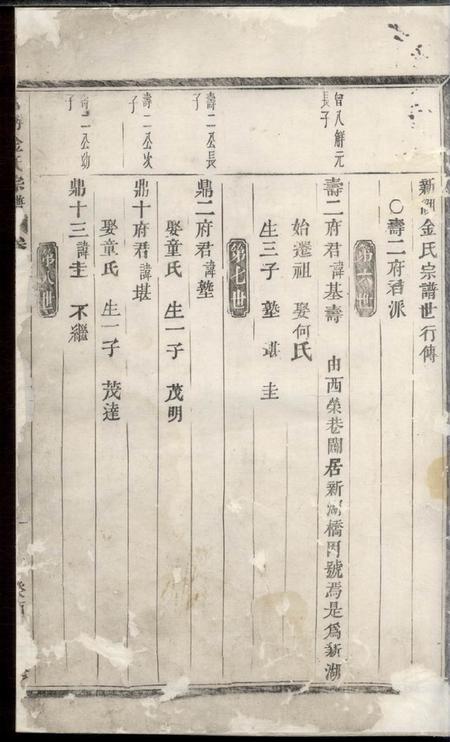 新湖金氏宗譜世行傳
○壽二府君派
第六世
曾八解元
長子
壽二府君諱基壽 由西榮巷闢居新湖橋因號焉是爲新湖
始遷祖 娶何氏
生三子 塾 堪 圭
第七世
壽二公長
子
鼎二府君諱塾
娶童氏 生一子 茂明
壽二公次
子
鼎十府君諱堪
娶童氏 生一子 茂達
壽二公幼
子
鼎十三諱圭 不繼
第八世
金氏宗譜